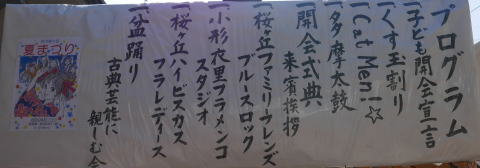 プログラム
一子ども開会宣言
一くす玉割り
一Cat Men！☆
一多摩太鼓
一開会式典
来賓挨拶
一桜ヶ丘ファミリーフレンズ
ブルースロック
一小形衣里フラメンコ
スタジオ
一桜ヶ丘ハイビスカス
フラレディース
一盆踊り
古典芸能に
親しむ会
夏まつり